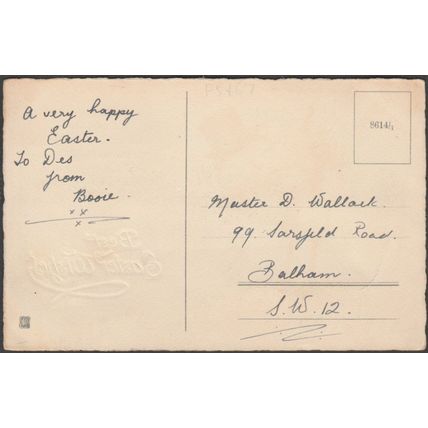 PS467
A very happy
Easter.
To Des
from
Booie.
x x
x
8614/1
Master D. Wallack.
99. Sarsfeld Road.
Balham.
S.W. 12.
Best
Easter Wishes